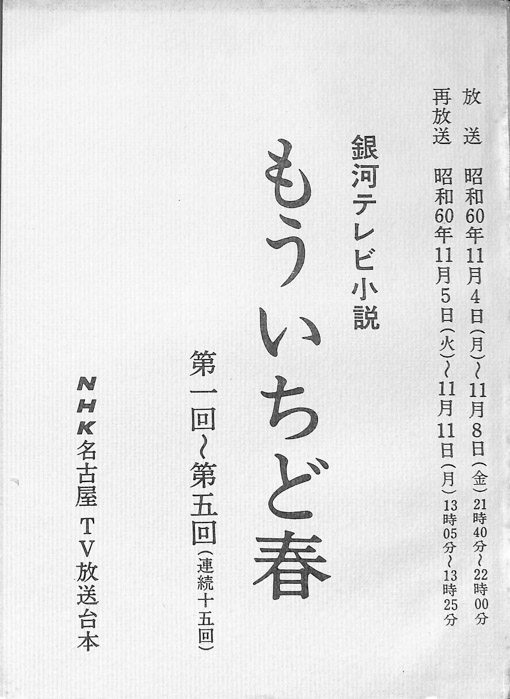 放送 昭和60年11月4日(月)〜11月8日(金)21時40分〜22時00分
再放送 昭和60年11月5日(火)〜11月11日(月)13時05分〜13時25分
銀河テレビ小説
もういちど春
第一回〜第五回(連続十五回)
NHK名古屋 TV放送台本